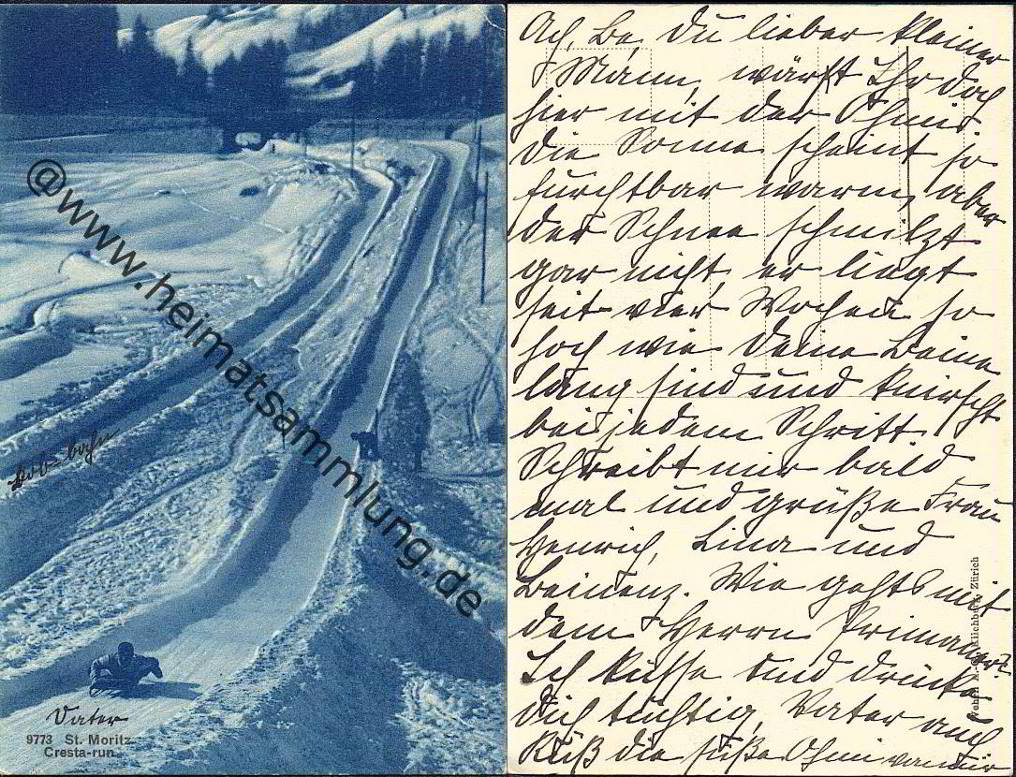 @www.heimatsammlung.de
Bob-bahn
Vater
9773 St. Moritz
Cresta-run
Ach, Be, du lieber kleiner
Mann, wärst Ihr doch
hier mit der Ohmi.
die Sonne scheint so
furchtbar warm, aber
der Schnee schmilzt
gar nicht, er liegt
seit vier Wochen so
hoch wie deine Beine
lang sind und knirscht
bei jedem Schritt.
Schreibt mir bald
mal und grüße Frau
Henrich, Lina und
Wie gehts mit
dem Herrn Primaner?
Ich küsse und drücke
dich tüchtig, Vater auch
Küß die süße Ohmi von mir
Zürich